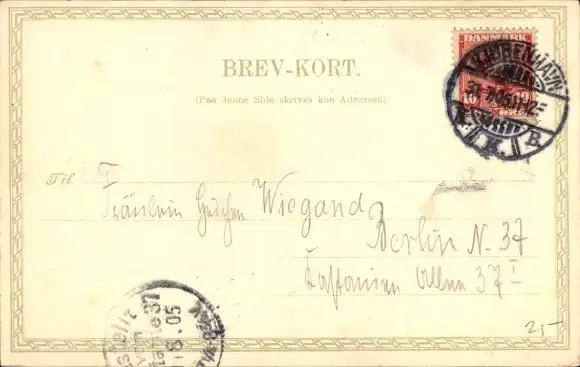 DANMARK
KJØBENHAVN
BREV-KORT.
(Paa denne Side skrives kun Adressen)
10 10
K.
Til F
Fräulein Wiegand
Berlin N. 37
Kastanien Allee 37 I
37
8.05
2,-